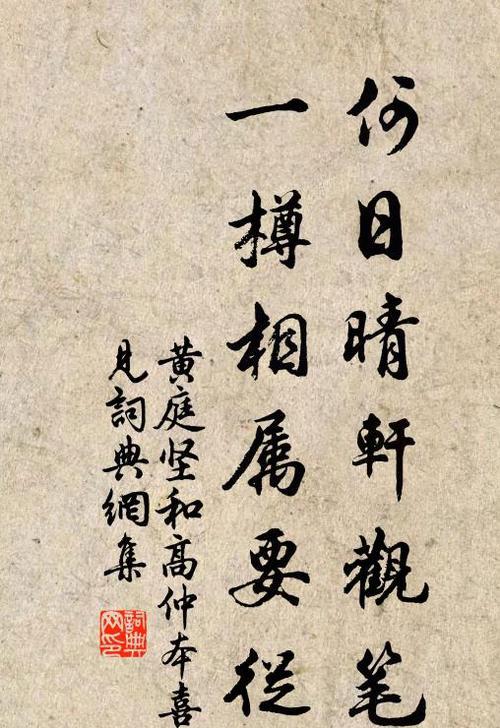 何日晴軒觀笔
一樽相属要從
黄庭坚和高仲本喜
見詞典網集
詞典網印